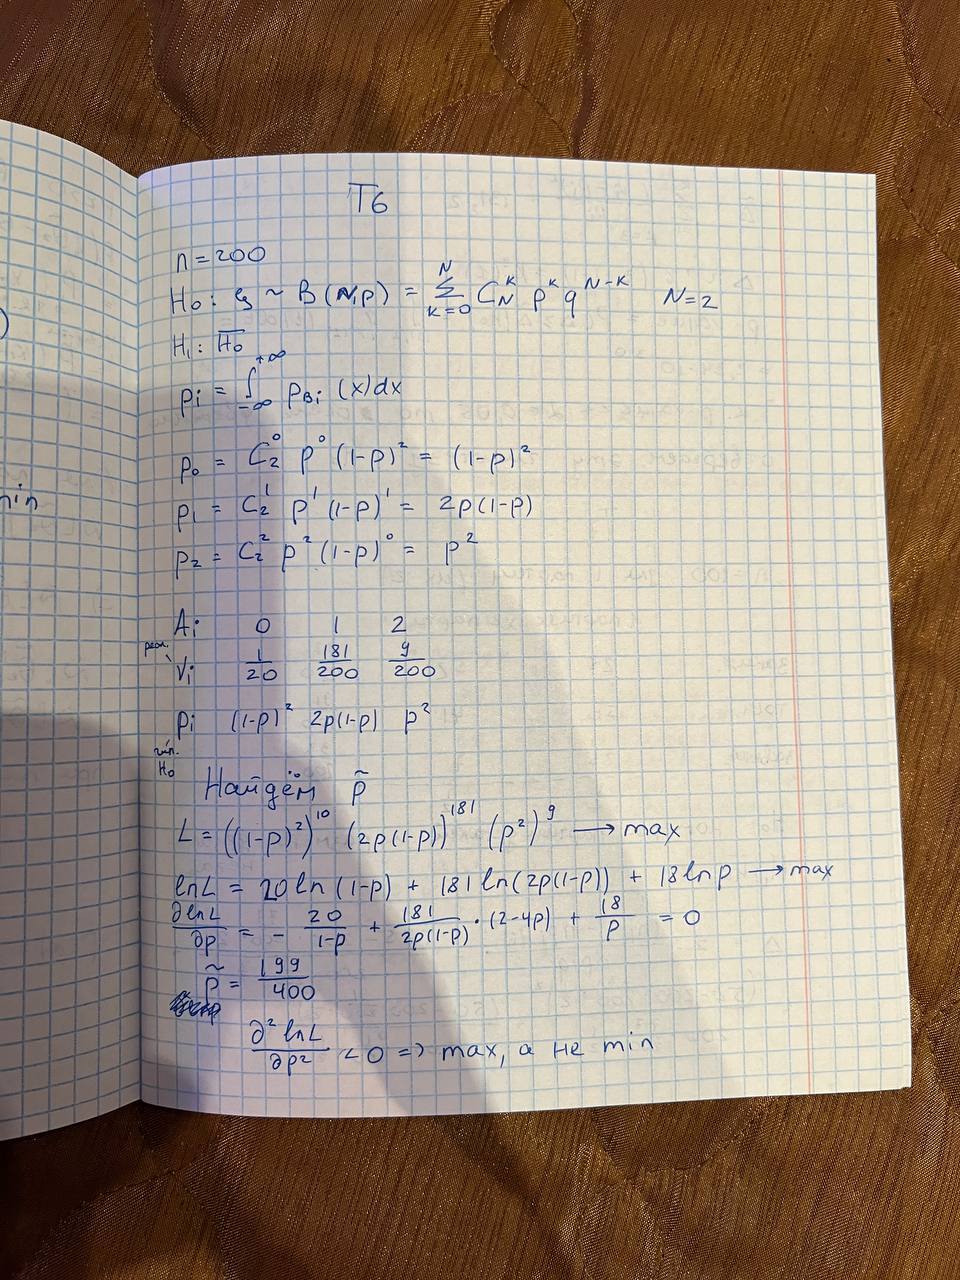 )
min
T6
n = 200
H₀: ξ ~ B(N,p) = Σ_{k=0}^{N} C_N^k p^k q^{N-k} N=2
H₁: H̅₀
pᵢ = ∫_{-∞}^{+∞} p_{Bᵢ} (x)dx
p₀ = C₂⁰ p⁰ (1-p)² = (1-p)²
p₁ = C₂¹ p¹ (1-p)¹ = 2p(1-p)
p₂ = C₂² p² (1-p)⁰ = p²
Aᵢ 0 1 2
реал.
νᵢ 1/20 181/200 9/200
pᵢ (1-p)² 2p(1-p) p²
гип.
H₀
Найдём p̃
L = ((1-p)²)¹⁰ (2p(1-p))¹⁸¹ (p²)⁹ → max
lnL = 20ln(1-p) + 181ln(2p(1-p)) + 18lnp → max
∂lnL/∂p = - 20/(1-p) + 181/(2p(1-p)) · (2-4p) + 18/p = 0
p̃ = 199/400
∂² lnL/∂p² < 0 => max, а не min